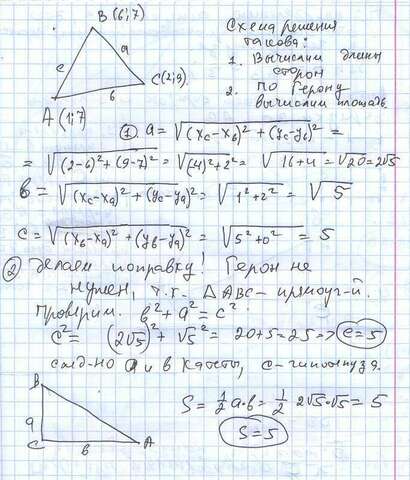 B (6;7)
c
a
C (2;9)
b
A (1;7)
Схема решения
такова:
1. Вычислим длины
сторон
2. по Герону
вычислим площадь.
① a = √(x_c-x_b)² + (y_c-y_b)² =
= √(2-6)² + (9-7)² = √(4)² + 2² = √16+4 = √20 = 2√5
b = √(x_c-x_a)² + (y_c-y_a)² = √1² + 2² = √5
c = √(x_b-x_a)² + (y_b-y_a)² = √5² + 0² = 5
② делаем поправку! Герон не
нужен, т.к. △ABC - прямоуг-й.
Проверим. b² + a² = c²
c² = (2√5)² + √5² = 20+5=25 => c=5
след-но a и b катеты, c - гипотенуза.
B
a
C
b
A
S = 1/2 a·b = 1/2 2√5·√5 = 5
S=5